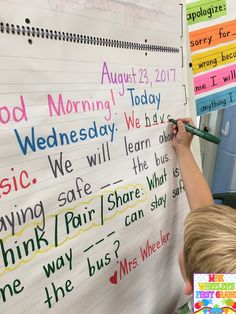 August 23, 2017
od Morning! Today
Wednesday. We hav
sic. We will learn about
aying safe _ _ the bus.
hink/Pair/Share: What is
ne way _ _ _ can stay saf
n _ _ the bus? ♥Mrs. Wheeler
apologize:
sorry for
wrong beca
me I will
anything I
MRS WHEELER'S FIRST GRADE